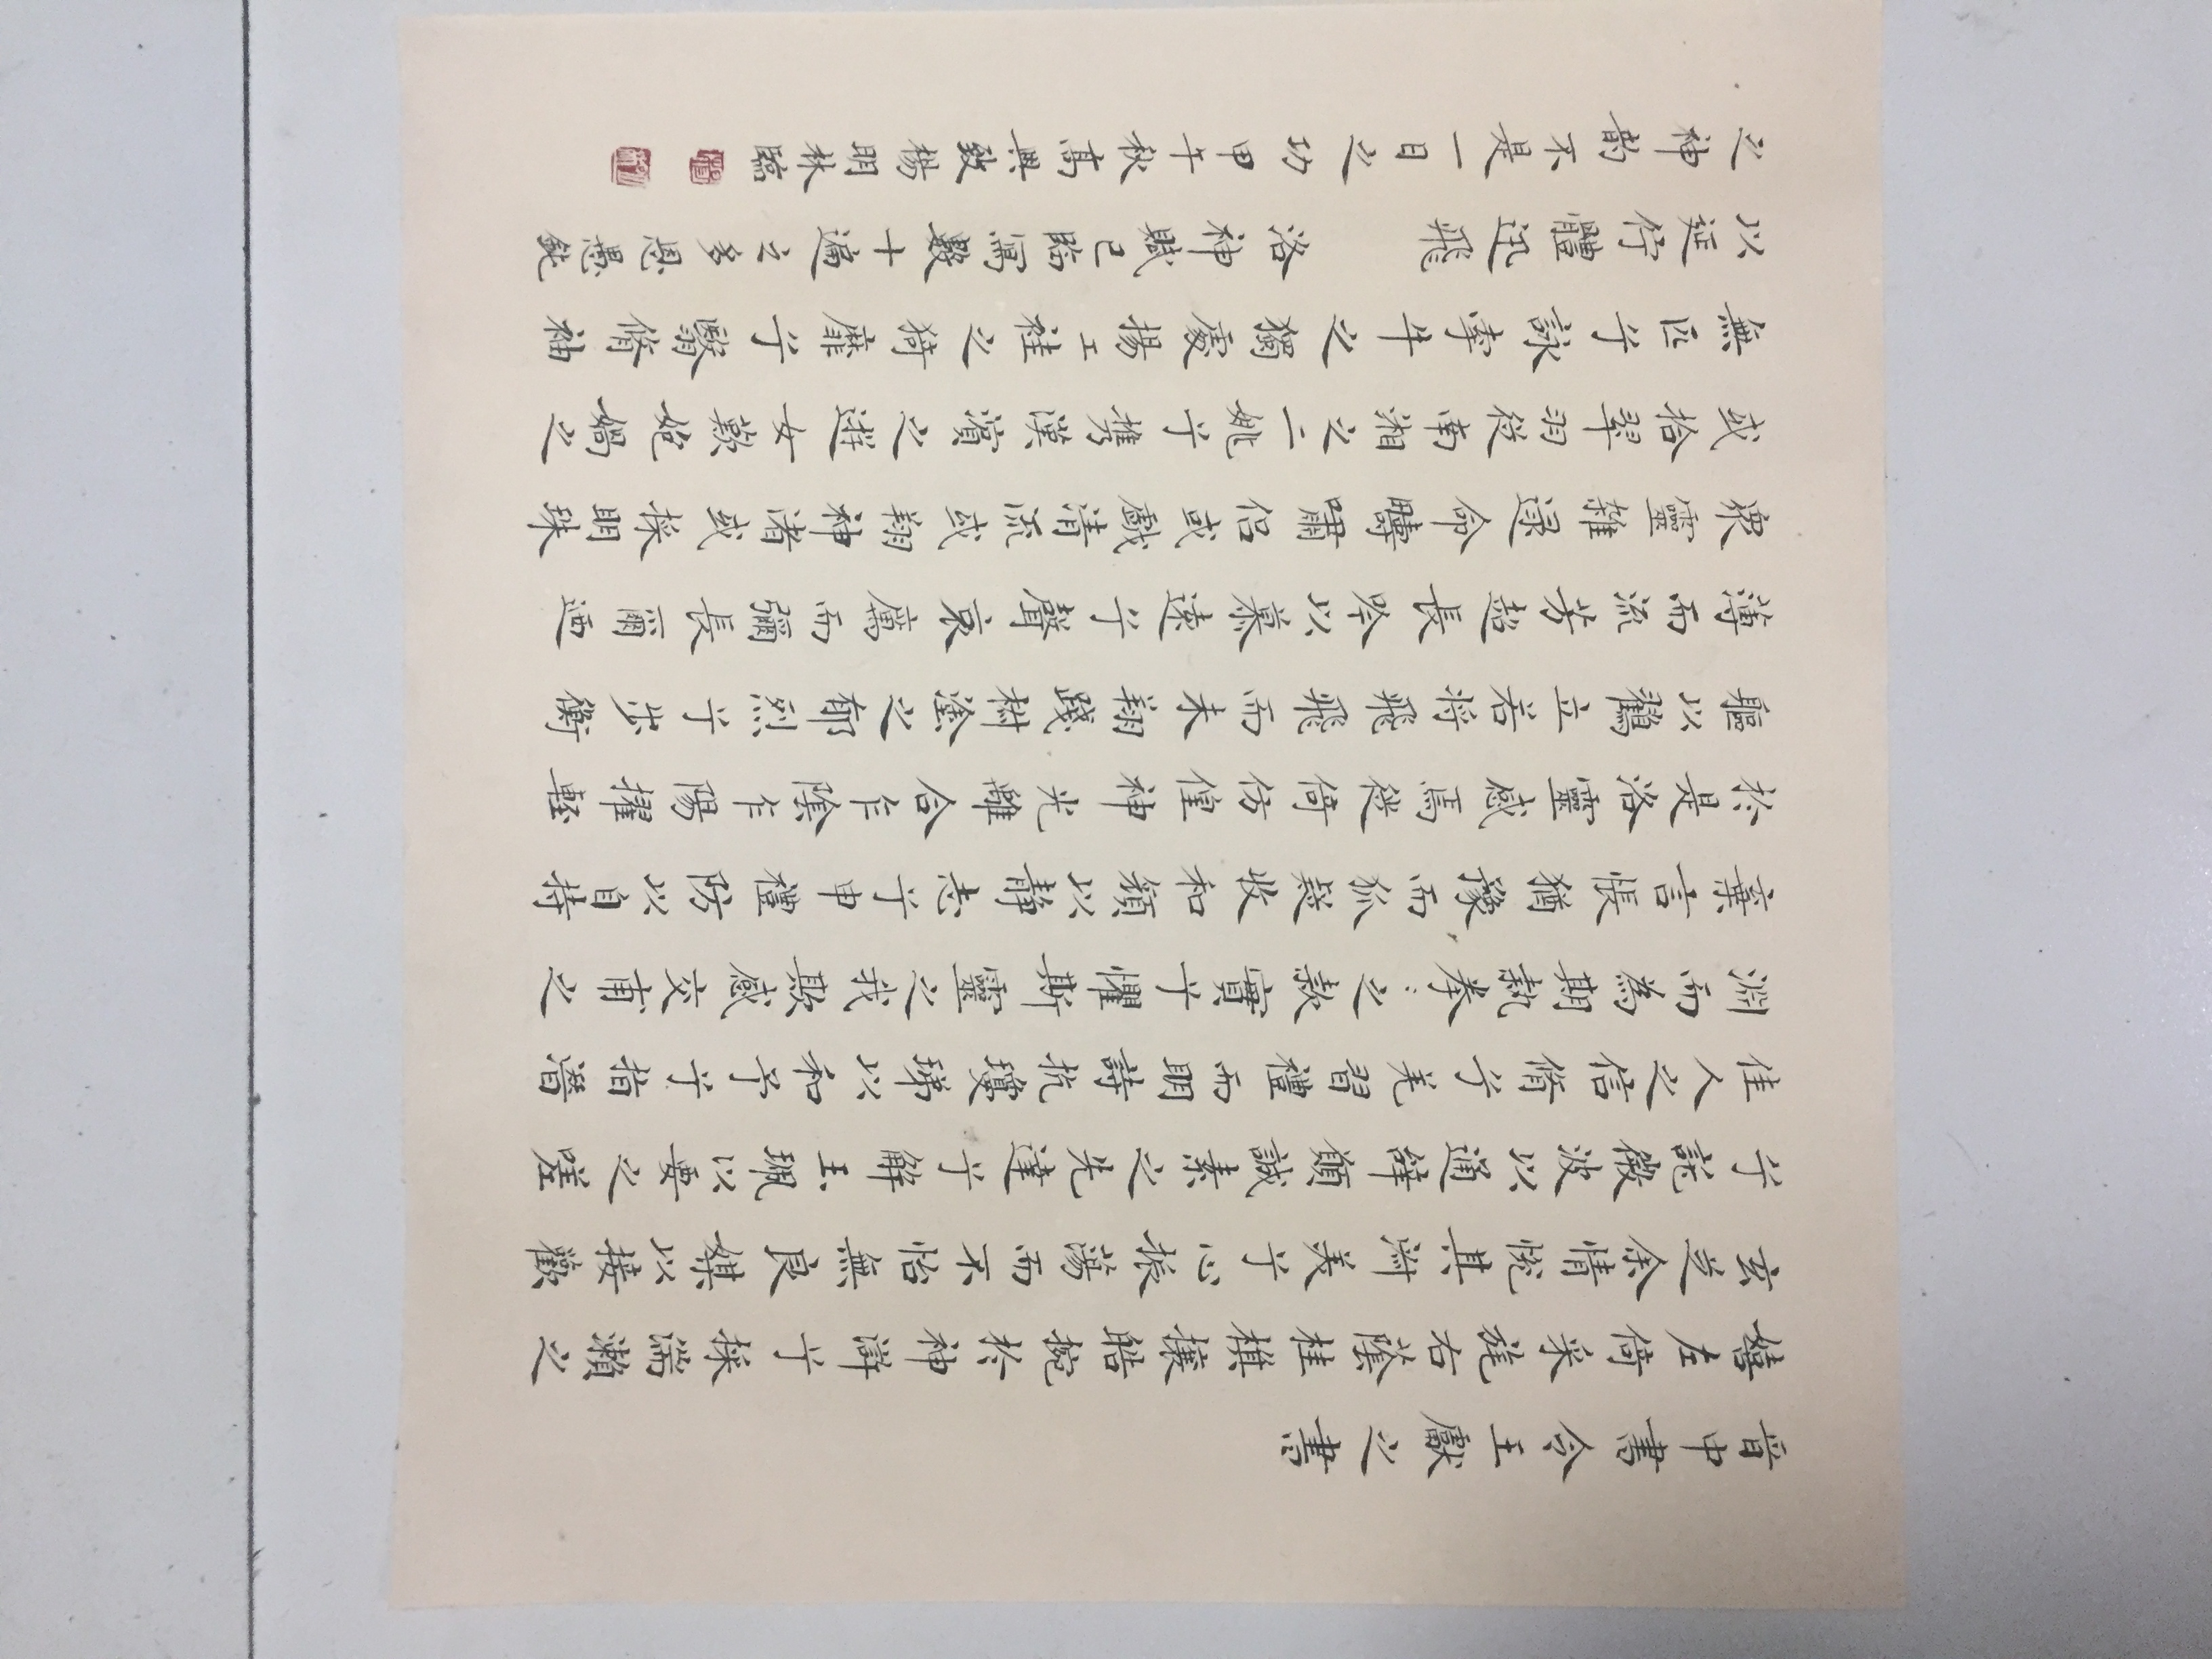 晋中書令王獻之書
嬉左倚采旄右蔭桂棋攘皓捥於神滸兮採湍瀨之
玄芝余情悅其淑美兮心振蕩而不怡無良媒以接歡
兮託微波以通辭願誠素之先達兮解玉珮以要之嗟
佳人之信脩兮羌習禮而明詩抗瓊珶以和予兮指潛
淵而為期執拳〻之款實兮懼斯靈之我欺感交甫之
棄言悵猶豫而狐疑收和顏以靜志兮申禮防以自持
於是洛靈感焉徙倚仿偟神光離合乍陰乍陽擢輕
軀以鶴立若将飛飛而未翔踐椒塗之郁烈兮步衡
薄而流芳超長吟以慕遠兮聲哀厲而彌長爾迺
衆靈雜遝命疇嘯侣或戲清流或翔神渚或採明珠
或拾翠羽從南湘之二姚兮携漢濱之遊女歎匏媧之
無匹兮詠牽牛之獨處揚工袿之猗靡兮翳脩袖
以延佇體迅飛 洛神賦已臨寫數十遍之多恩愚鈍
之神韵不是一日之功甲午秋高興致楊明林臨